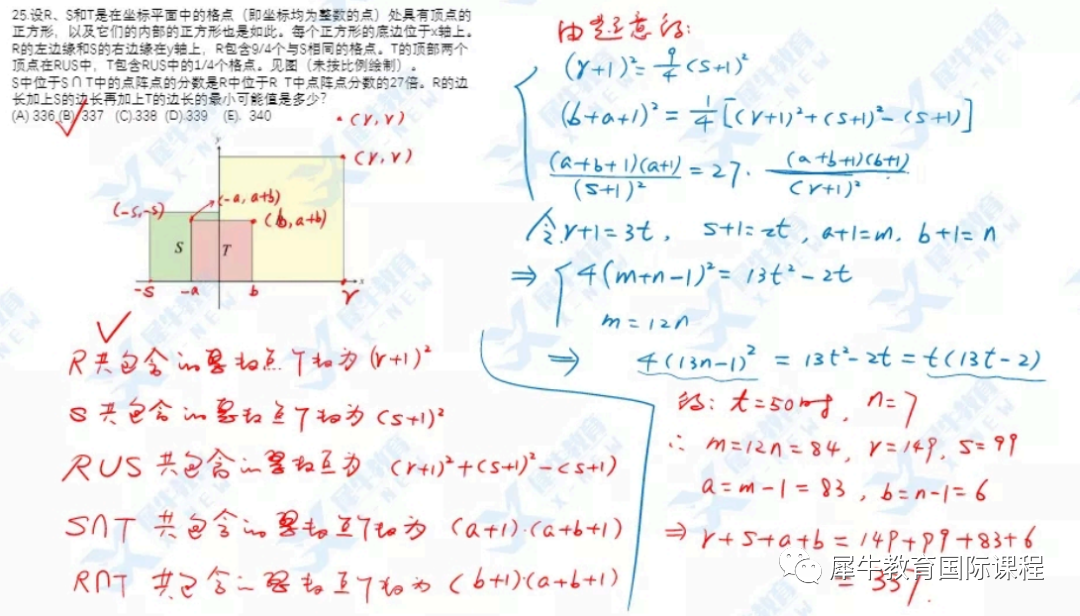 25.设R、S和T是在坐标平面中的格点（即坐标均为整数的点）处具有顶点的
正方形，以及它们的内部的正方形也是如此。每个正方形的底边位于x轴上。
R的左边缘和S的右边缘在y轴上，R包含9/4个与S相同的格点。T的顶部两个
顶点在RUS中，T包含RUS中的1/4个格点。见图（未按比例绘制）。
S中位于S∩T中的点阵点的分数是R中位于R T中点阵点分数的27倍。R的边
长加上S的边长再加上T的边长的最小可能值是多少?
(A) 336 (B) 337 (C).338 (D).339 (E). 340
(r,r)
y
(r,r)
(-s,-s)
(-a, a+b)
(b, a+b)
S
T
-s
-a
b
r
x
R共包含的累极点个极为 (r+1)²
S共包含的累极点个极为 (s+1)²
RUS 共包含的累极点为 (r+1)²+(s+1)²-(s+1)
S∩T 共包含的累极点个极为 (a+1)·(a+b+1)
R∩T 共包含的累极点个极为 (b+1)·(a+b+1)
由题意的:
(r+1)²=9/4(s+1)²
(b+a+1)²=1/4[(r+1)²+(s+1)²-(s+1)]
(a+b+1)(a+1)/(s+1)²=27·(a+b+1)(b+1)/(r+1)²
令 r+1=3t, s+1=2t, a+1=m, b+1=n
⇒ 4(m+n-1)²=13t²-2t
m=12n
⇒ 4(13n-1)²=13t²-2t=t(13t-2)
的: t=50时, n=7
∴ m=12n=84, r=149, s=99
a=m-1=83, b=n-1=6
⇒ r+s+a+b=149+99+83+6
=337.
犀牛教育国际课程
犀牛教育
X-NEW